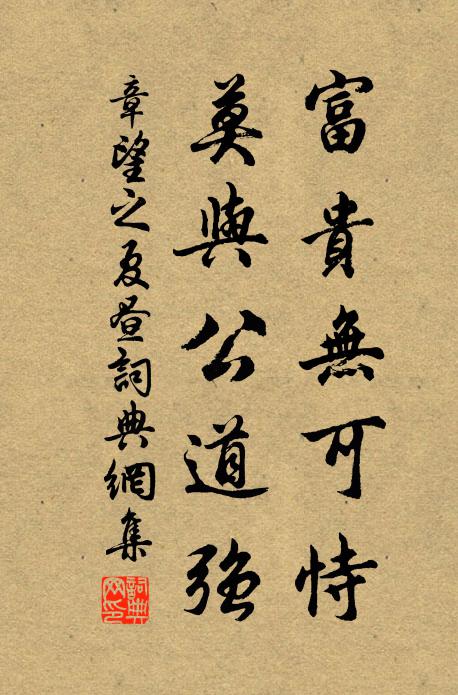 富貴無可恃
莫與公道強
章望之夏晝詞典網集
詞典网印